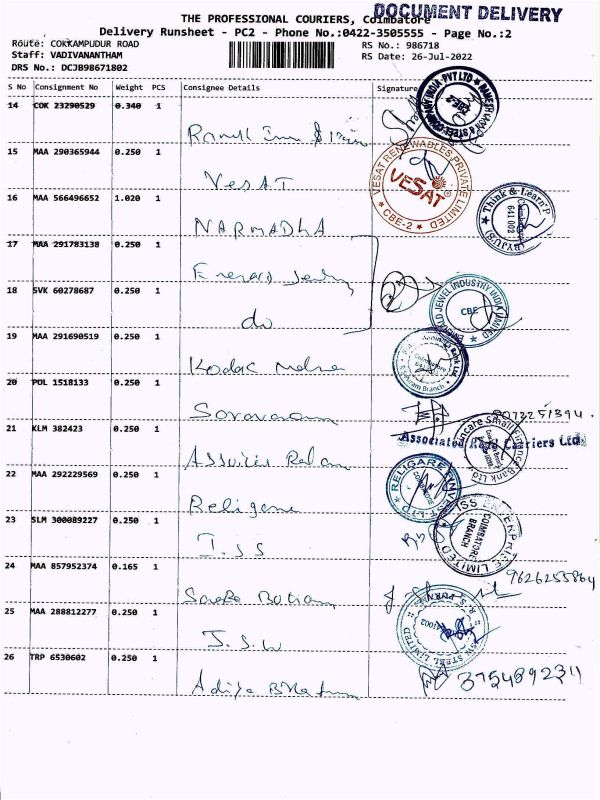 DOCUMENT DELIVERY
THE PROFESSIONAL COURIERS, Coimbatore
Delivery Runsheet - PC2 - Phone No.:0422-3505555 - Page No.:2
Route: COKKAMPUDUR ROAD
RS No.: 986718
Staff: VADIVANANTHAM
RS Date: 26-Jul-2022
DRS No.: DCJB98671802
S No Consignment No Weight PCS Consignee Details Signature
14 COK 23290529 0.340 1
15 MAA 290365944 0.250 1
VESAT
VESAT RENEWABLES PRIVATE LIMITED
VESAT
CBE-2
16 MAA 566496652 1.020 1
NARMADHA
Think & Learn P
641 002
(BYJU'S)
17 MAA 291783138 0.250 1
Emerald
18 SVK 60278687 0.250 1
do
JEWEL INDUSTRY INDIA LIMITED
CBE
19 MAA 291690519 0.250 1
Kodak
20 POL 1518133 0.250 1
Saravanan
9073251394.
21 KLM 382423 0.250 1
Associated Road Carriers Ltd.
Small Finance Bank Ltd
22 MAA 292229569 0.250 1
Religare
RELIGARE
23 SLM 300089227 0.250 1
I.SS
ISS ENTERPRISE LIMITED
COIMBATORE
BRANCH
24 MAA 857952374 0.165 1
9626255864
25 MAA 288812277 0.250 1
J.S.W
JSW STEEL LIMITED
26 TRP 6530602 0.250 1
Aditya